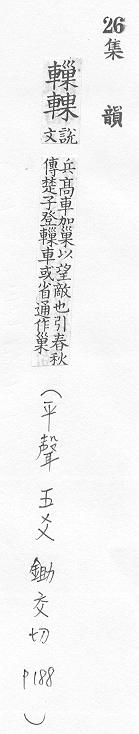 26
集韻
轈
說文
兵髙車加巢以望敵也引春秋
傳楚子登轈車或省通作巢
(平聲 五爻 鋤交切 P188)